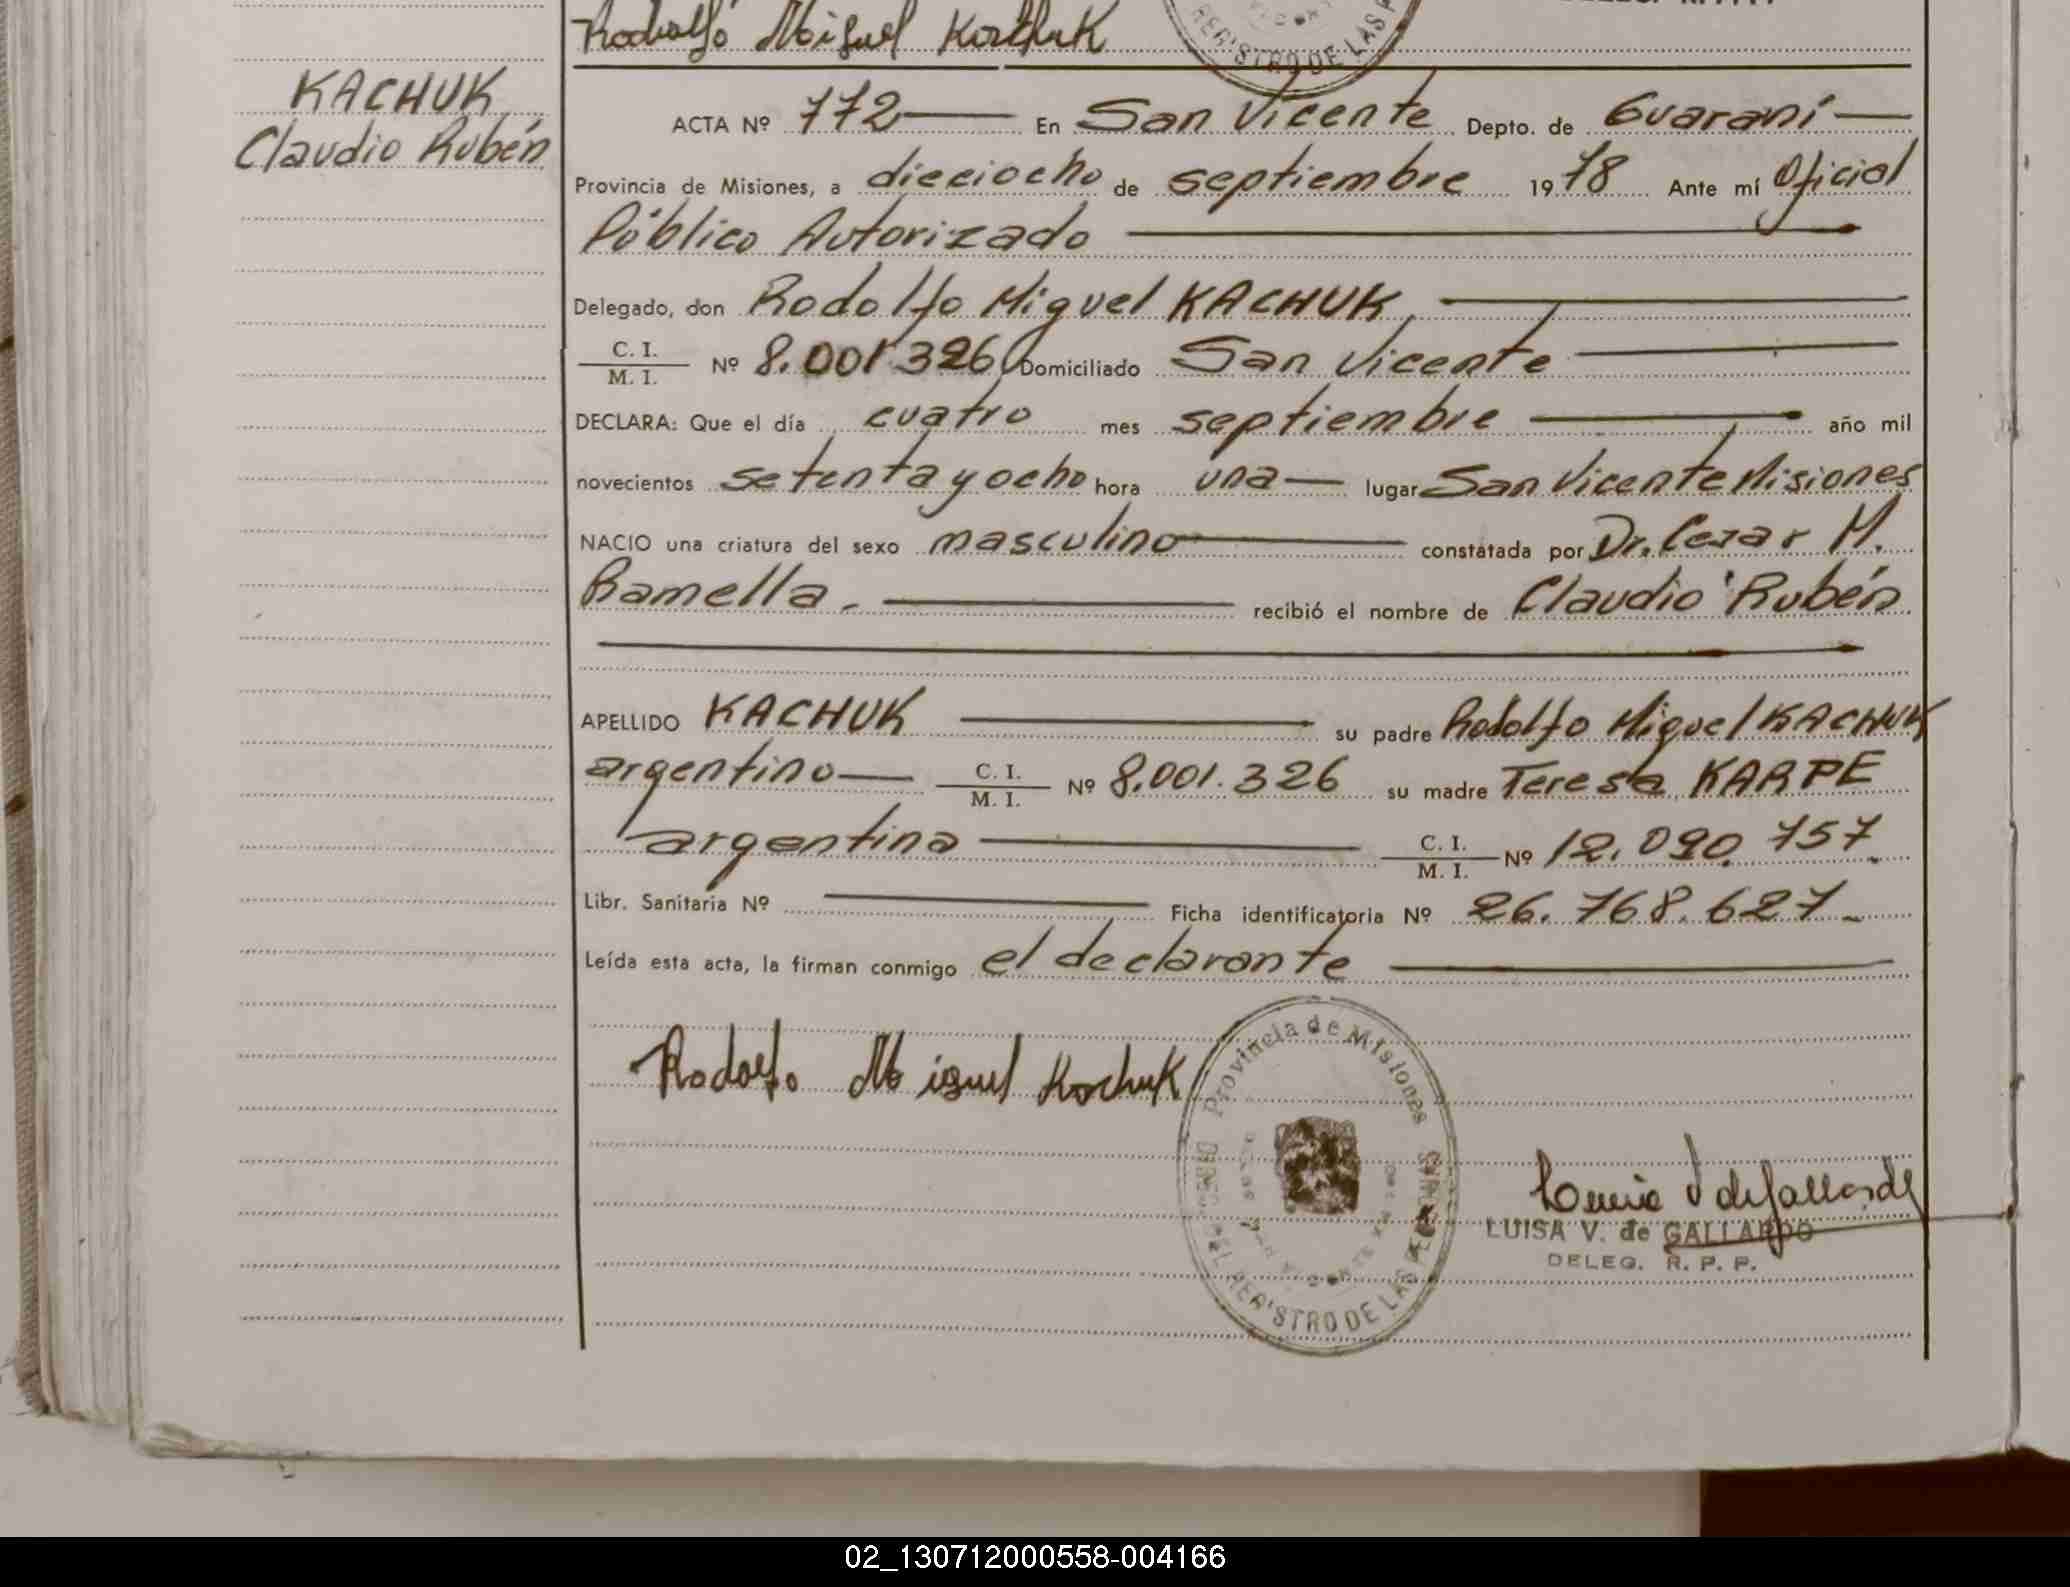 Rodolfo Miguel Kachuk
REGISTRO DE LAS P
KACHUK
Claudio Rubén
ACTA Nº 772 En San Vicente Depto. de Guaraní
Provincia de Misiones, a dieciocho de septiembre 1978 Ante mí Oficial
Público Autorizado
Delegado, don Rodolfo Miguel KACHUK,
C. I.
M. I. Nº 8.001.326 Domiciliado San Vicente
DECLARA: Que el día cuatro mes septiembre año mil
novecientos setenta y ocho hora una lugar San Vicente Misiones
NACIO una criatura del sexo masculino constatada por Dr. Cezar M.
Ramella. recibió el nombre de Claudio Rubén
APELLIDO KACHUK su padre Rodolfo Miguel KACHUK
argentino C. I.
M. I. Nº 8.001.326 su madre Teresa KARPE
argentina C. I.
M. I. Nº 12.090.757.
Libr. Sanitaria Nº Ficha identificatoria Nº 26.768.627.
Leída esta acta, la firman conmigo el declarante
Rodolfo Miguel Kachuk
Provincia de Misiones
REGISTRO DE LAS
LUISA V. de GALLARDO
DELEG. R. P. P.
02_130712000558-004166